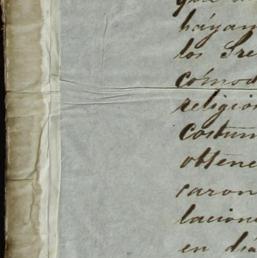 que
hayan
los Sre
comod
religio
costum
obtene
caron
lacion
en di